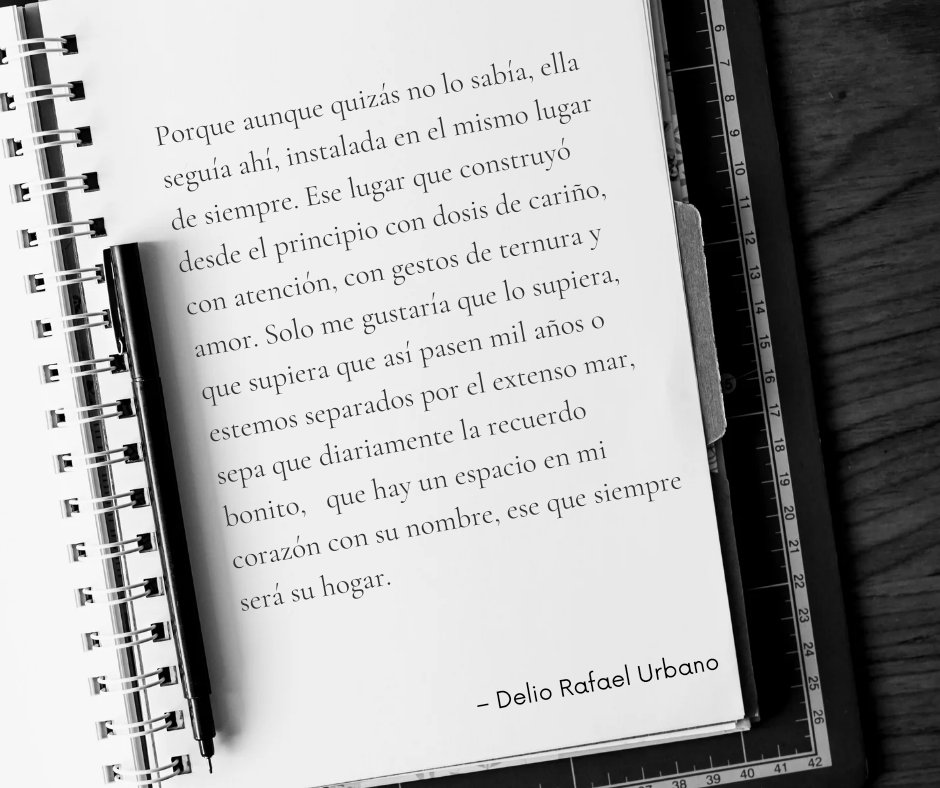 Porque aunque quizás no lo sabía, ella
seguía ahí, instalada en el mismo lugar
de siempre. Ese lugar que construyó
desde el principio con dosis de cariño,
con atención, con gestos de ternura y
amor. Solo me gustaría que lo supiera,
que supiera que así pasen mil años o
estemos separados por el extenso mar,
sepa que diariamente la recuerdo
bonito,   que hay un espacio en mi
corazón con su nombre, ese que siempre
será su hogar.
– Delio Rafael Urbano
6
7
8
9
10
11
12
13
14
15
16
17
18
19
20
21
22
23
24
25
26
38
39
40
41
42